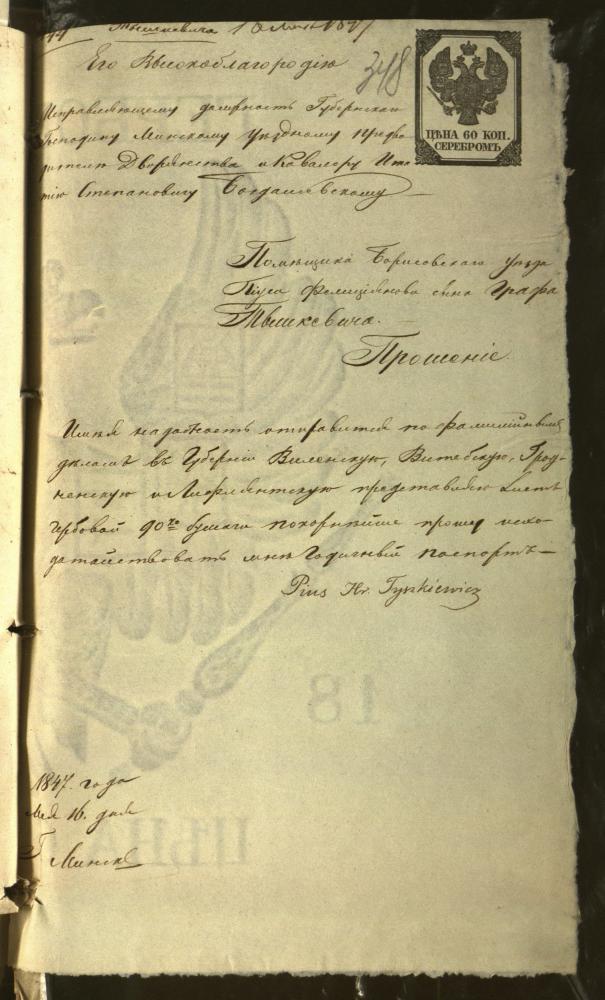 Тышкевича 16 Мая 1847
Его Высокоблагородію
348
ЦѢНА 60 КОП.
СЕРЕБРОМЪ.
Исправляющему должность Губернскаго
Господину Минскому уѣздному предво-
дителю Дворянства и Кавалеру
Степановичу Богдашевскому
Помѣщика Борисовскаго уѣзда
Піуса Фелиціянова сына Графа
Тышкевича.
Прошеніе.
Имѣя надобность отправится по фамилійнымъ
дѣламъ въ Губерніи Виленскую, Витебскую, Грод-
ненскую и Лифляндскую представляю листъ
гербовой 90 ко бумаги покорнѣйше прошу исхо-
датайствовать мнѣ Годичный паспортъ —
Pius Hr. Tyszkiewicz
18
ЦѢНА
1847. года
Мая 16. дня
Г. Минскъ